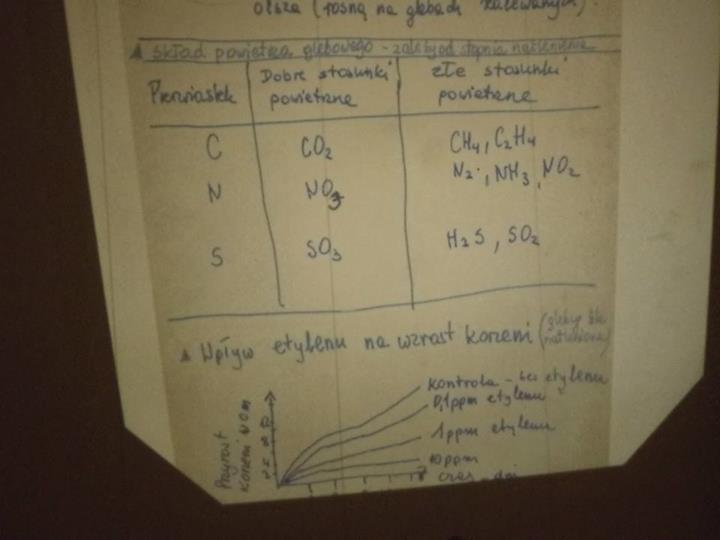 olsza (rosną na glebach zalewanych).
▲ skład powietrza glebowego - zależy od stopnia natlenienia
Pierwiastek
Dobre stosunki
powietrzne
złe stosunki
powietrzne
C
CO2
CH4, C2H4
N
NO3
N2, NH3, NO2
S
SO3
H2S, SO2
▲ Wpływ etylenu na wzrost korzeni (gleby źle
natlenione)
Przyrost
korzeni w cm
kontrola - bez etylenu
0,1ppm etylenu
1ppm etylenu
10ppm
czas - dni